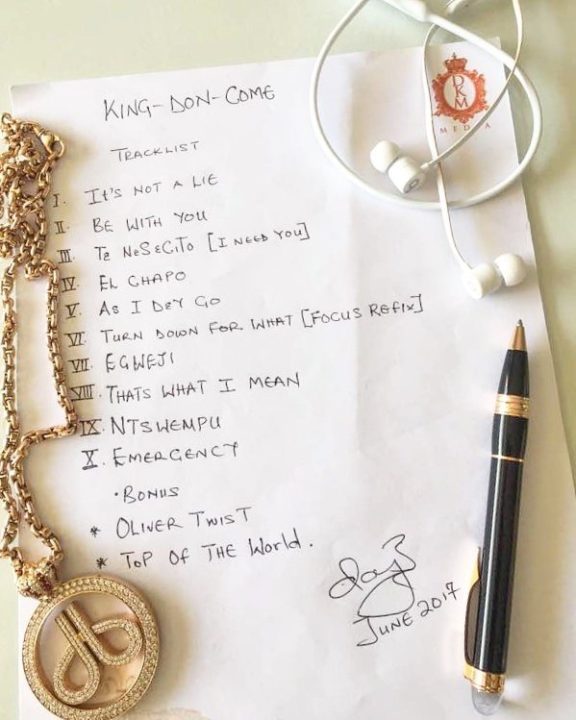 KING-DON-COME
DKM
MEDIA
TRACKLIST
I. It's NOT A LIE
II. BE WITH YOU
III. Te NeSeCiTo [I NEED YOU]
IV. EL CHAPO
V. As I DeY Go
VI. TURN DOWN FOR WHAT [FOCUS REFIX]
VII. EGWEJI
VIII. THATS WHAT I MEAN
IX. NTSWEMPU
X. EMERGENCY
• BONUS
* OLIVER TWIST
* ToP OF THE WORLD.
JUNE 2017